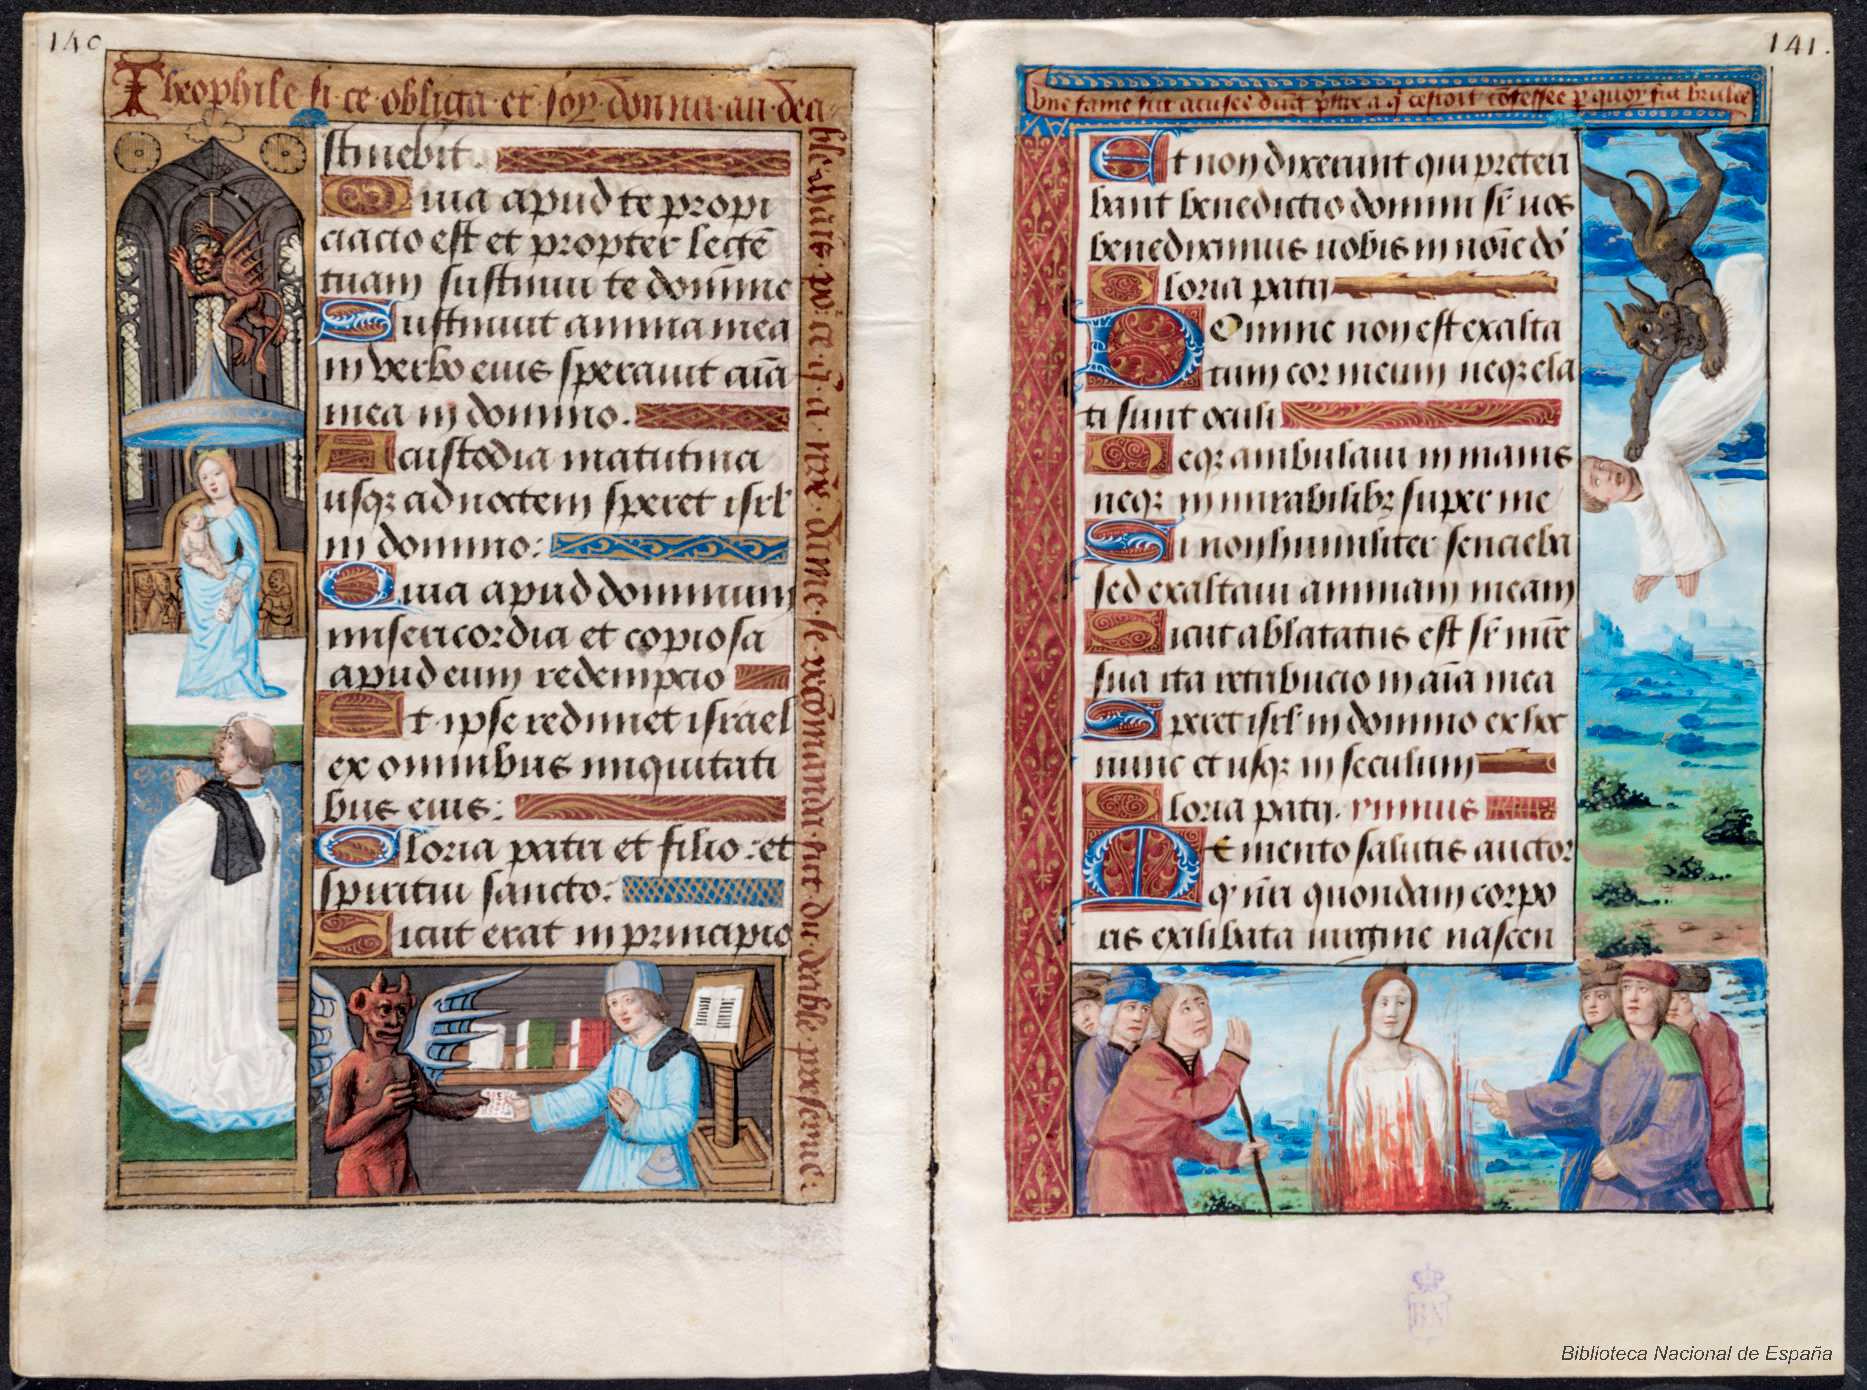 140
Theophile si ce obliga et soy donna au dea
ble mais po² ce q̃ a nr̃e dame se recõmanda fut du deable preserue
stinebit.
Quia apud te propi
ciacio est et propter legẽ
tuam sustinui te domine
Sustinuit anima mea
in verbo eius speravit aĩa
mea in domino.
A custodia matutina
usqꝫ ad noctem speret isrl
in domino:
Quia apud dominum
misericordia et copiosa
apud eum redempcio
Et ipse redimet israel
ex omnibus iniquitati
bus eius:
Gloria patri et filio: et
spiritui sancto:
Sicut erat in principio
141.
Une fame fut acusee
q̃ cestoit cõfessee p quoy fut brulee
Et non dixerunt qui preteri
bant benedictio domini sr̃ uos
benediximus uobis in noĩe dõ
Gloria patri
Domine non est exalta
tum cor meum neqꝫ ela
ti sunt oculi
Neqꝫ ambulaui in mains
neqꝫ in mirabilibꝫ super me
Si non humiliter sencieba
sed exaltaui animam meam
Sicut ablatatus est sr̃ mr̃e
sua ita retribucio in aĩa mea
Speret isrl in domino ex hoc
nunc et usqꝫ in seculum
Gloria patri. ymnus
Memento salutis auctor
q̃ nr̃i quondam corpo
ris ex illibata uirgine nascen
BN
Biblioteca Nacional de España